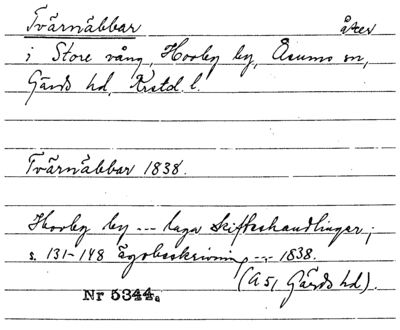 Tvärnäbbar åker
i Store vång, Horby by, Åsums sn,
Gärds hd, Krstd. l.
Tvärnäbbar 1838.
Horby by --- laga skifteshandlingar;
s. 131-148 Ägobeskrivning --- 1838.
(A 51 Gärds hd).
Nr 5344a